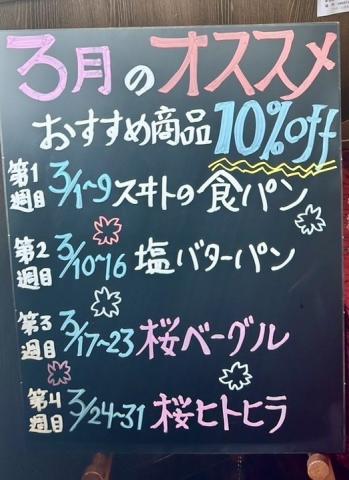 3月のオススメ
おすすめ商品10%off
第1週目 3/1~9 スヰトの食パン
第2週目 3/10~16 塩バターパン
第3週目 3/17~23 桜ベーグル
第4週目 3/24~31 桜ヒトヒラ